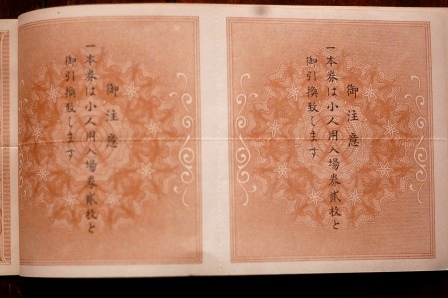 御注意
一本券は小人用入場券貳枚と
御引換致します
御注意
一本券は小人用入場券貳枚と
御引換致します